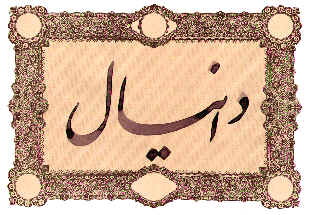 دانیال